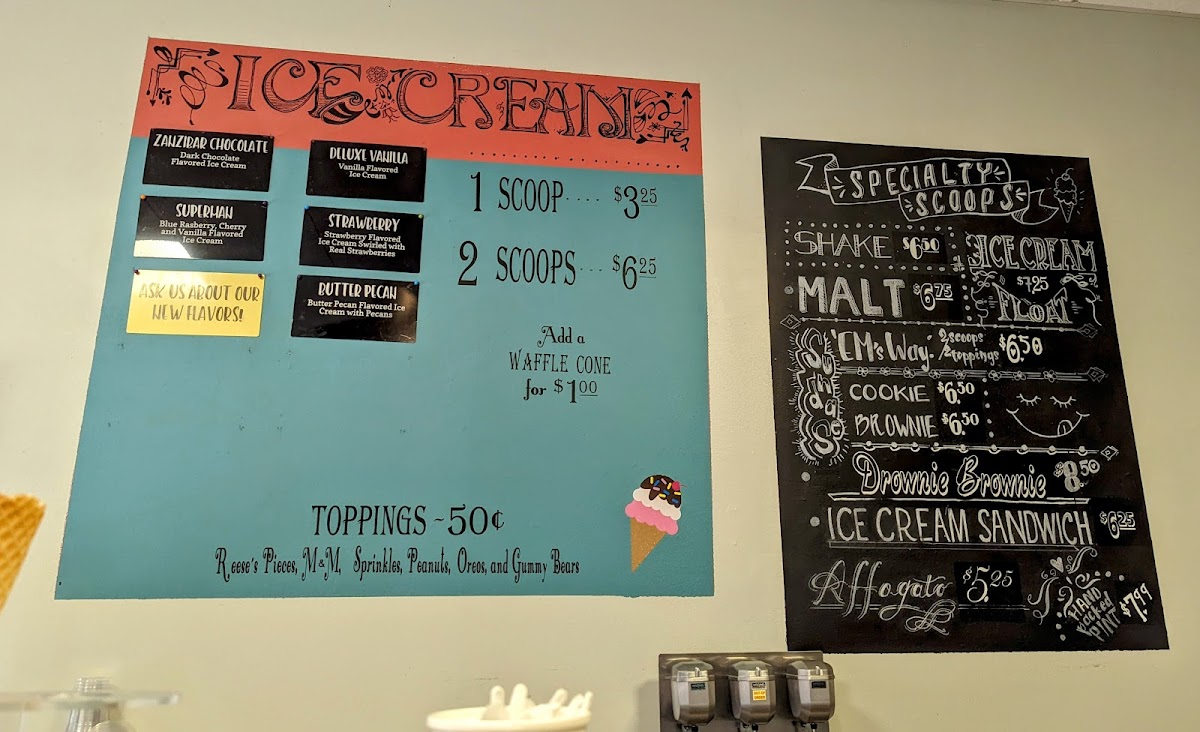 ICE CREAM
ZANZIBAR CHOCOLATE
Dark Chocolate
Flavored Ice Cream
DELUXE VANILLA
Vanilla Flavored
Ice Cream
SUPERMAN
Blue Rasberry, Cherry
and Vanilla Flavored
Ice Cream
STRAWBERRY
Strawberry Flavored
Ice Cream Swirled with
Real Strawberries
ASK US ABOUT OUR
NEW FLAVORS!
BUTTER PECAN
Butter Pecan Flavored Ice
Cream with Pecans
1 SCOOP.... $3.25
2 SCOOPS... $6.25
Add a
WAFFLE CONE
for $1.00
TOPPINGS ~ 50¢
Reese's Pieces, M&M, Sprinkles, Peanuts, Oreos, and Gummy Bears
SPECIALTY
SCOOPS
SHAKE $6.50
MALT $6.75
ICE CREAM
$7.25
FLOAT
SUNdaeS
'EM's Way: 2 scoops / 2 toppings $6.50
COOKIE $6.50
BROWNIE $6.50
Drownie Brownie $8.50
ICE CREAM SANDWICH $6.25
Affogato $5.25
HAND
Packed
PINT $7.99